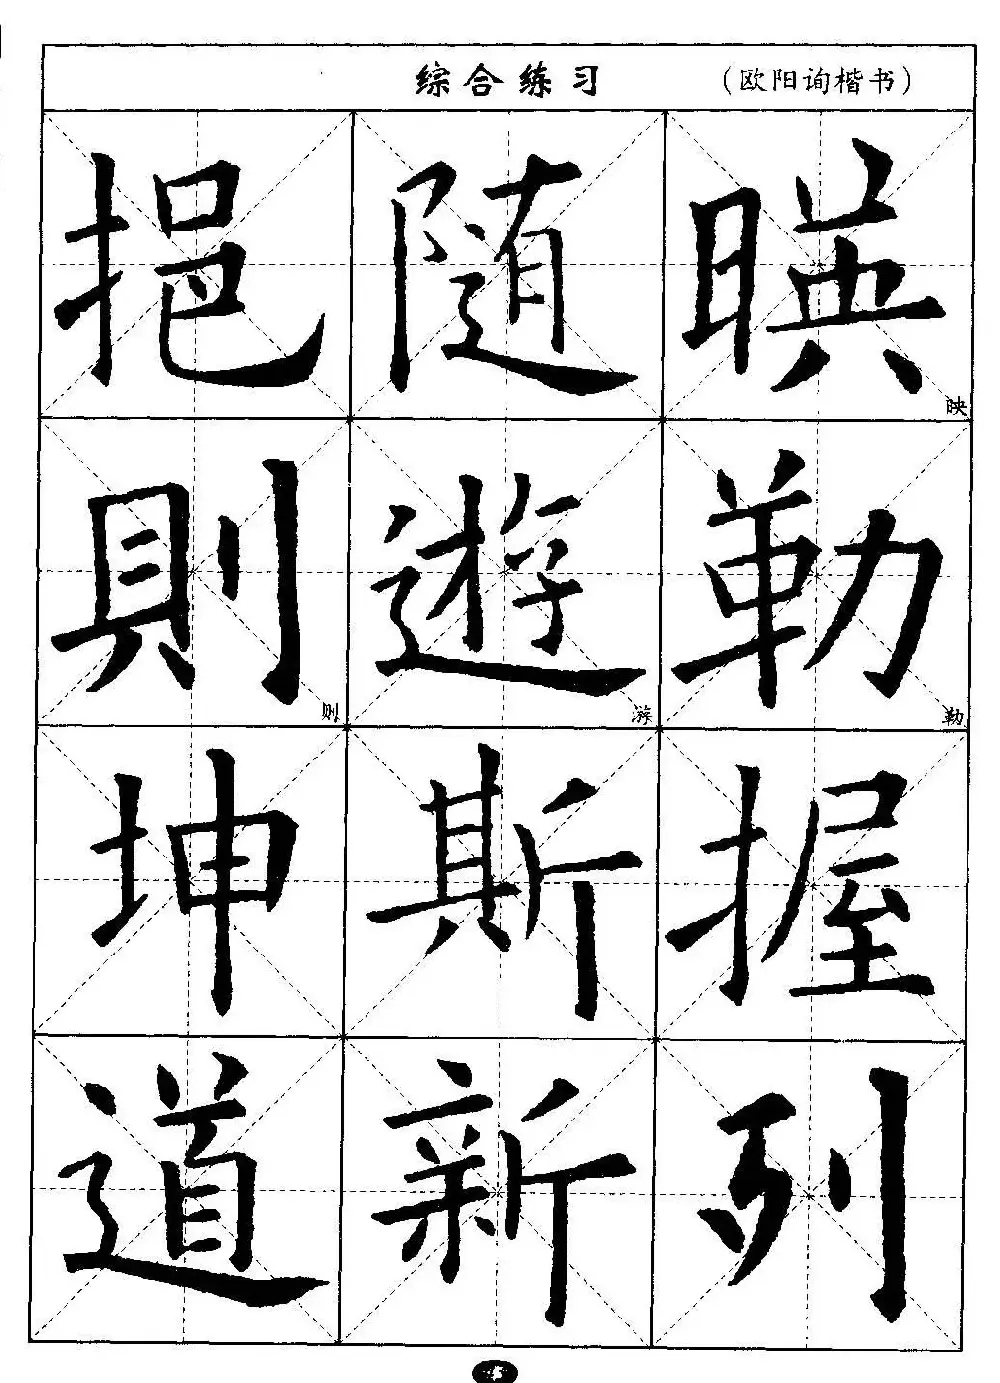 综合练习 （欧阳询楷书）
挹 随 暎 映
則 则 遊 游 勒 勒
坤 斯 握
道 新 列